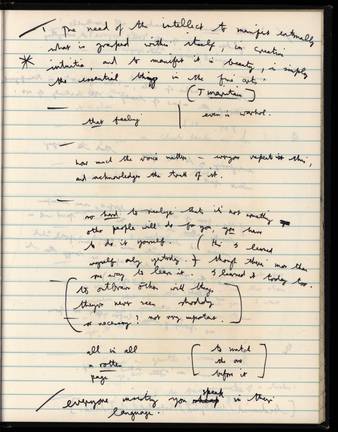 The need of the intellect to manifest externally
what is grasped within itself, in creative
intuition, and to manifest it in beauty, is simply
the essential thing in the fine arts.
(J Maritain)
that feeling | even in warhol.
how much the voice matters – everyone repeats this,
and acknowledges the truth of it.
so hard to realize that it is not something
other people will do for you, you have
to do it yourself. (this I learned
myself only yesterday, though there is more than
one way to learn it. I learned it today too.
other will they
never seen,
so necessary; not very
all in all
a rotten
page
to match
the one
before it
everyone you speak in their
language.